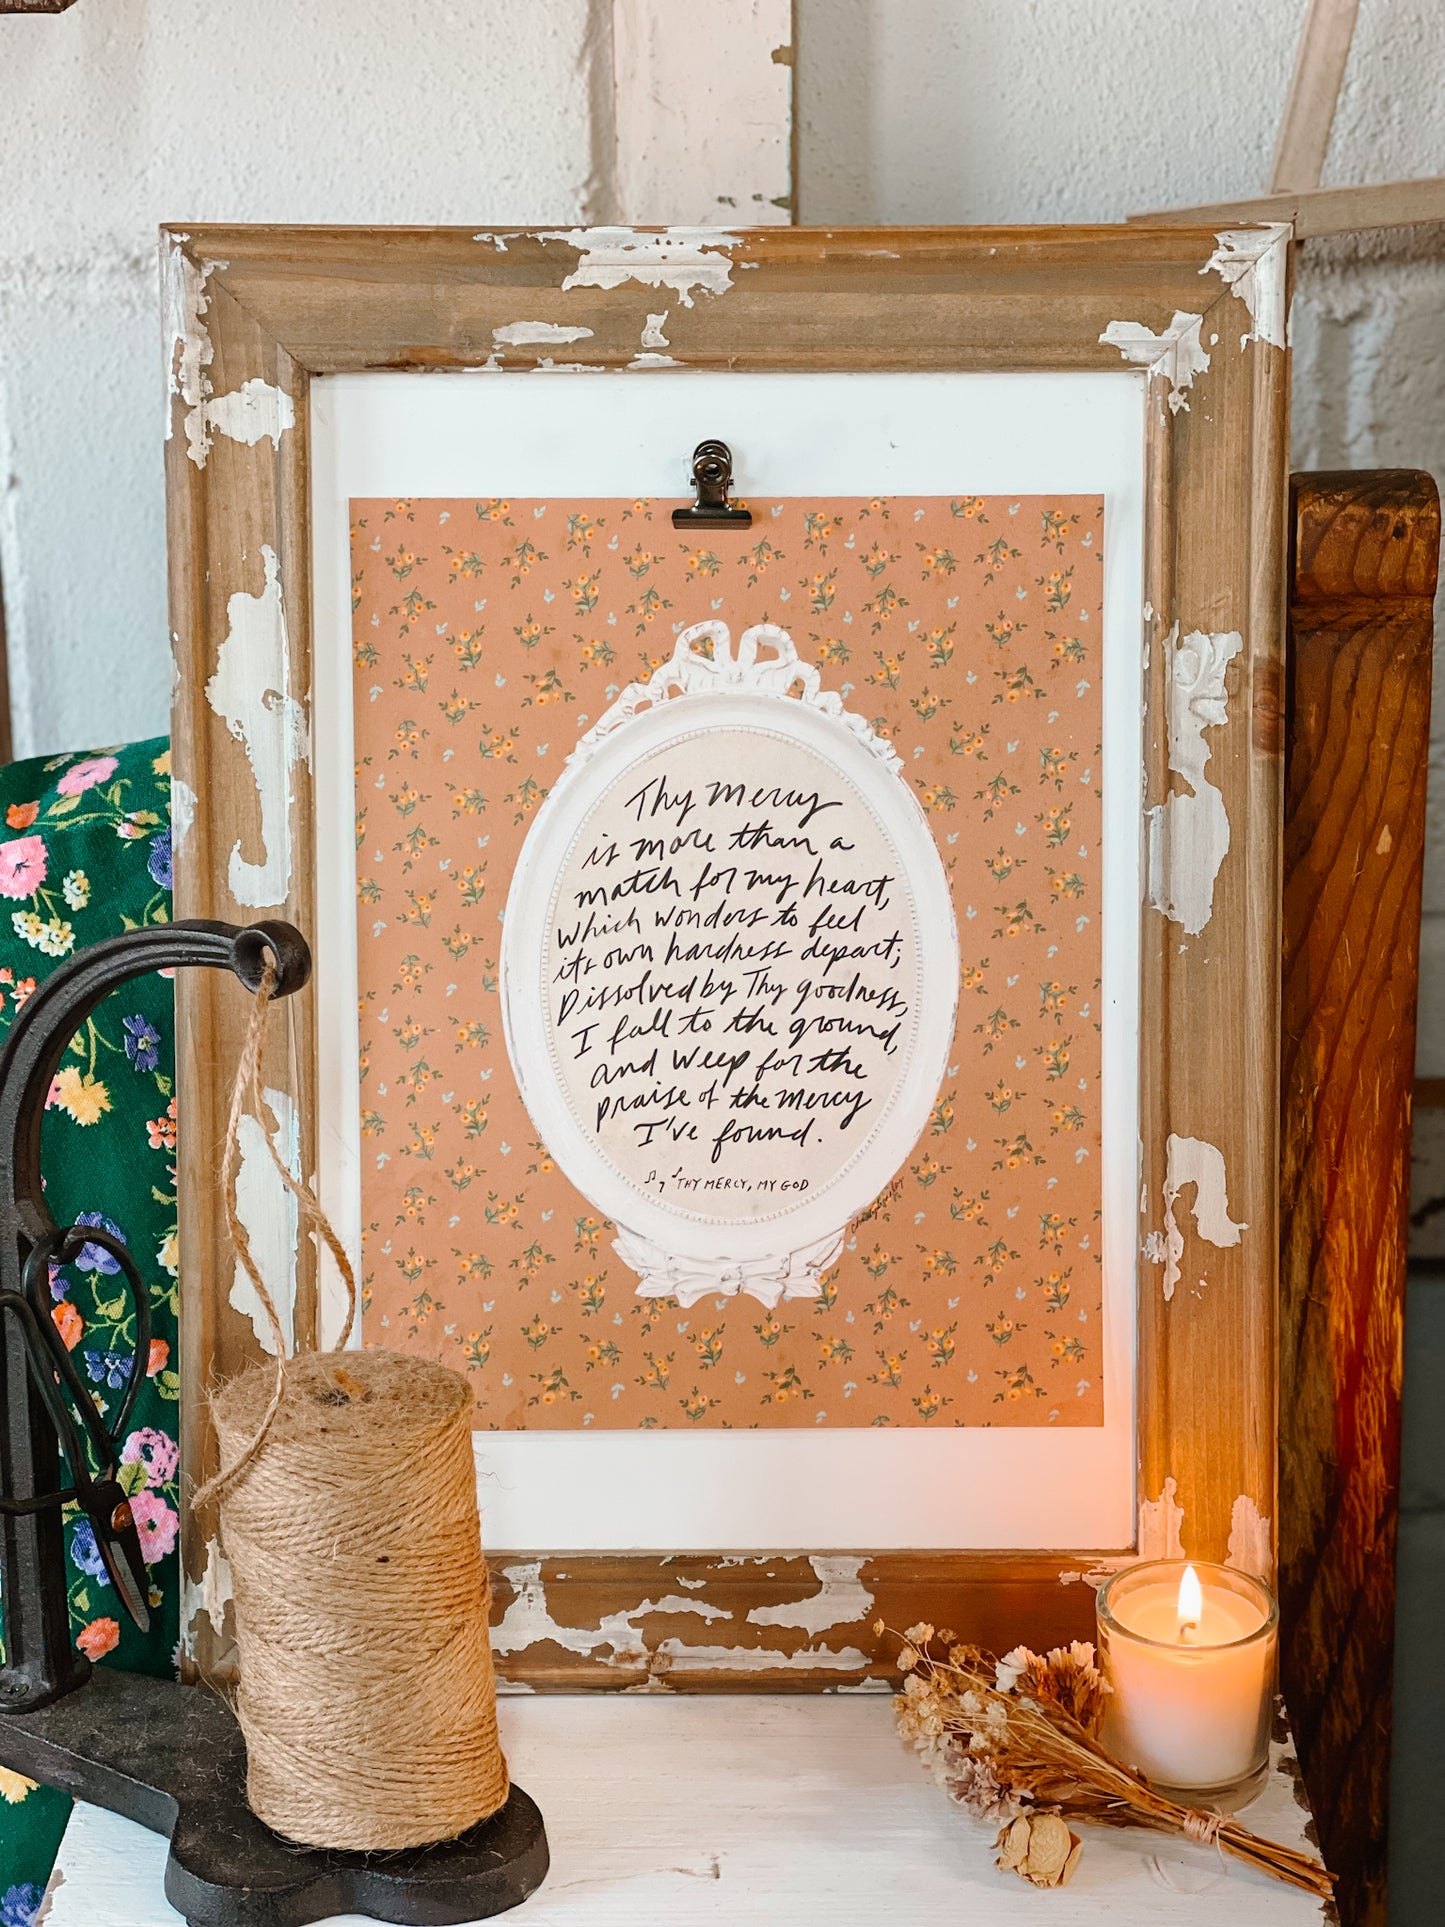 Thy mercy
is more than a
match for my heart,
which wonders to feel
its own hardness depart;
Dissolved by Thy goodness,
I fall to the ground,
and weep for the
praise of the mercy
I've found.
THY MERCY, MY GOD